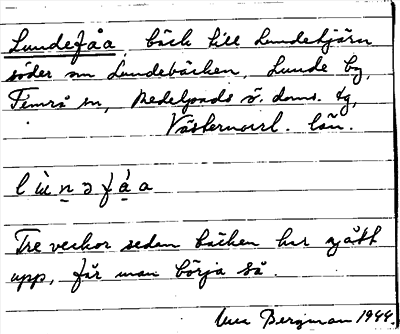 Lundefåa, bäck till Lundetjärn
söder om Lundebäcken, Lunde by,
Timrå sn, Medelpads ö. doms. tg,
Västernorrl. län.
lùn̲əfá̲a
Tre veckor sedan bäcken har gått
upp, får man börja så.
Bergman 1944.